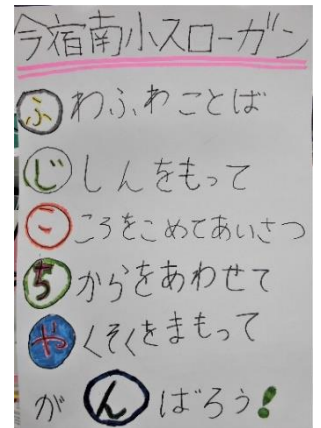 今宿南小スローガン
ふわふわことば
じしんをもって
こころをこめてあいさつ
ちからをあわせて
やくそくをまもって
がんばろう!